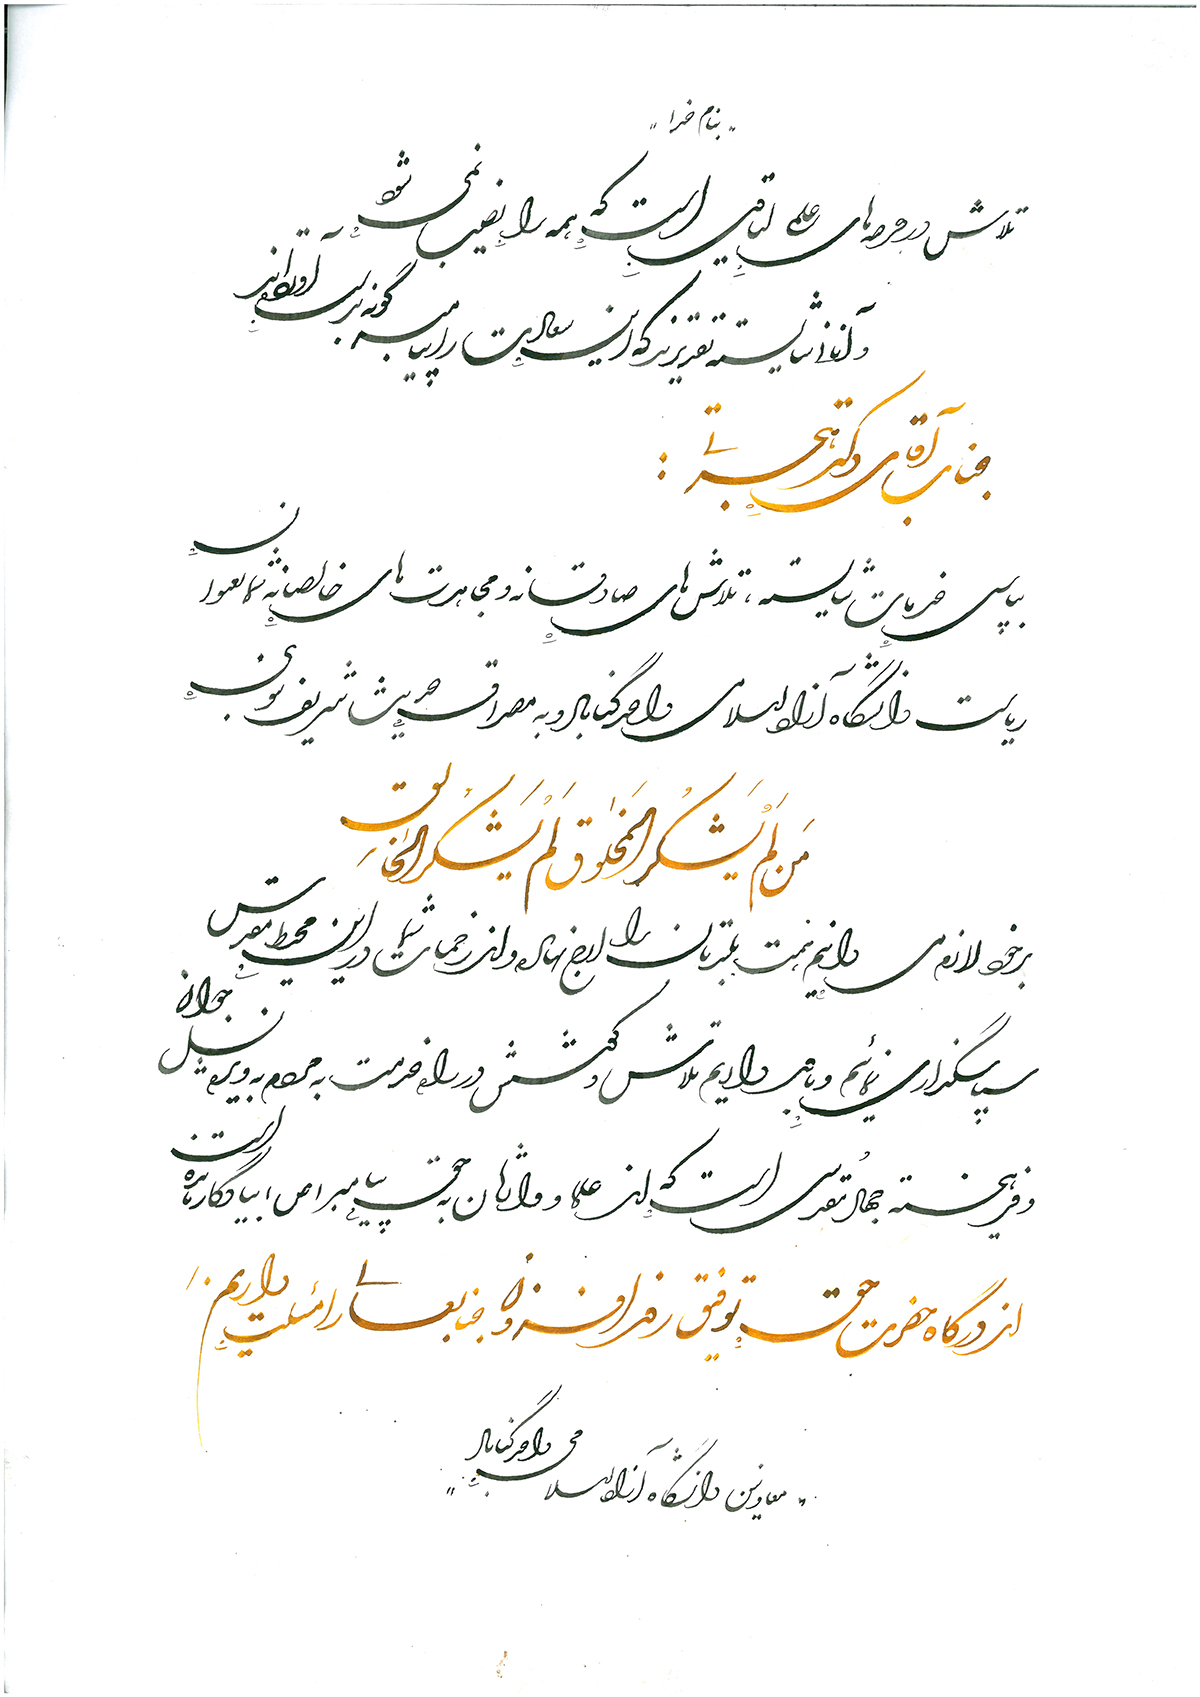 "بنام خدا"
تلاش در عرصه های علمی لیاقتی است که همه را نصیب نمی شود
و آنانی شایسته تقدیرند که این سعادت را پیامبر گونه بدست آورده اند
جناب آقای دکتر هجرتی :
بپاس خدمات شایسته، تلاش های صادقانه و مجاهدت های خالصانه شما بعنوان
ریاست دانشگاه آزاد اسلامی واحد گناباد و به مصداق حدیث شریف نبوی
مَن لَمْ یَشْکُرِ المَخلوق لَمْ یَشْکُرِ الخالِق
برخود لازم می دانیم همت بلندتان را ارج نهاده و از زحمات شما در این محیط مقدس
سپاسگذاری نمائیم و باور داریم تلاش و کوشش در راه خدمت به مردم به ویژه نسل جوان
و فرهیخته جهاد مقدسی است که از علما و وارثان به حق پیامبر (ص) بیادگار مانده است
از درگاه حضرت حق توفیق روز افزون جنابعالی را مسئلت داریم.
"معاونین دانشگاه آزاد اسلامی واحد گناباد"